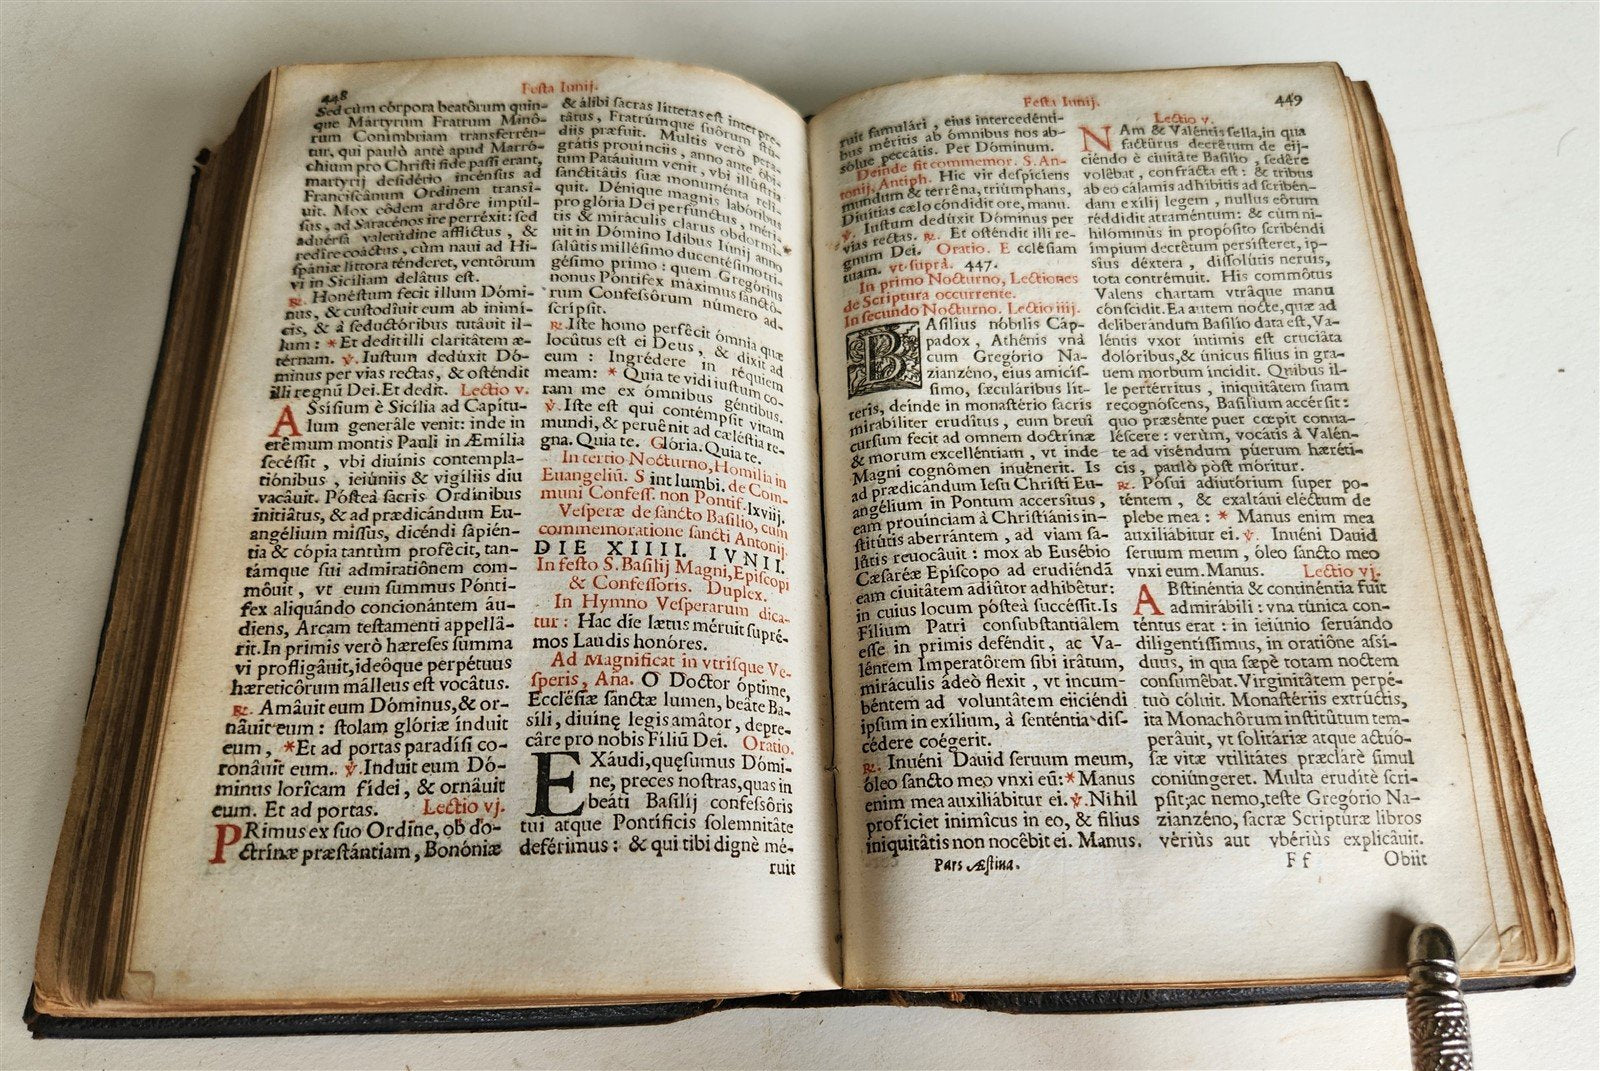 448
Festa Iunij.
Sed cùm córpora beatôrum quin-
que Mártyrum Fratrum Minô-
rum Conimbriam transferrén-
tur, qui paulò antè apud Marró-
chium pro Christi fide passi erant,
martyrij desidério incénsus ad
Franciscânum Ordinem transí-
uit. Mox eôdem ardôre impúl-
sus, ad Saracénos ire perréxit: sed
aduérsa valetúdine afflictus, &
redîre coáctus, cùm naui ad Hi-
spániæ líttora ténderet, ventôrum
vi in Sicíliam delâtus est.
℟. Honéstum fecit illum Dómi-
nus, & custodîuit eum ab inimí-
cis, & à seductóribus tutâuit il-
lum: * Et dedit illi claritâtem æ-
térnam. ℣. Iustum dedúxit Dó-
minus per vias rectas, & osténdit
illi regnū Dei. Et dedit. Lectio v.
ASsísium è Sicília ad Capítu-
lum generâle venit: inde in
erêmum montis Pauli in Æmília
secéssit, vbi diuínis contempla-
tiónibus, ieiúniis & vigíliis diu
vacâuit. Pósteà sacris Ordínibus
initiâtus, & ad prædicándum Eu-
angélium missus, dicéndi sapién-
tia & cópia tantùm profêcit, tan-
támque sui admiratiônem com-
môuit, vt eum summus Pónti-
fex aliquándo concionántem áu-
diens, Arcam testamenti appellâ-
rit. In primis verò hæreses summa
vi profligâuit, ideôque perpétuus
hæreticôrum málleus est vocâtus.
℟. Amâuit eum Dóminus, & or-
nâuit eum: stolam glóriæ índuit
eum, * Et ad portas paradísi co-
ronâuit eum. ℣. Induit eum Dó-
minus lorîcam fídei, & ornâuit
eum. Et ad portas. Lectio vj.
PRimus ex suo Ordĩne, ob do-
ctrínæ præstántiam, Bonóniæ
& álibi sacras lítteras est interpre-
tâtus, Fratrúmque suôrum stú-
diis præfuit. Multis verò pera-
grátis prouínciis, anno ante óbi-
tum Patáuium venit, vbi illústria
sanctitâtis suæ monuménta relí-
quit. Dénique magnis labóribus
pro glória Dei perfúnctus, méri-
tis & miráculis clarus obdormí-
uit in Dómino Idibus Iunij anno
salûtis millésimo ducentésimo tri-
gésimo primo: quem Gregórius
nonus Póntifex máximus sanctô-
rum Confessôrum número ad-
scripsit.
℟. Iste homo perfêcit ómnia quæ
locûtus est ei Deus, & dixit ad
eum: Ingrédere in réquiem
meam: * Quia te vidi iustum co-
ram me ex ómnibus géntibus.
℣. Iste est qui contémpsit vitam
mundi, & peruênit ad cæléstia re-
gna. Quia te. Glória. Quia te.
In tertio Nocturno, Homilia in
Euangeliū. Sint lumbi. de Com-
muni Confess. non Pontif. lxviij.
Vesperæ de sancto Basilio, cum
commemoratione sancti Antonij.
DIE XIIII. IVNII.
In festo S. Basilij Magni, Episcopi
& Confessoris. Duplex.
In Hymno Vesperarum dica-
tur: Hac die lætus méruit supré-
mos Laudis honóres.
Ad Magnificat in vtrisque Ve-
speris, Aña. O Doctor óptime,
Ecclésiæ sanctæ lumen, beáte Ba-
síli, diuínę legis amâtor, depre-
câre pro nobis Fíliū Dei. Oratio.
EXáudi, quęsumus Dómi-
ne, preces nostras, quas in
beáti Basílij confessôris
tui atque Pontíficis solemnitâte
deférimus: & qui tibi dignè mé-
ruit
Festa Iunij.
449
ruit famulári, eius intercedénti-
bus méritis ab ómnibus nos ab-
sólue peccátis. Per Dóminum.
Deinde fit commemor. S. An-
tonij. Antiph. Hic vir despíciens
mundum & terrêna, triúmphans,
Diuítias cælo cóndidit ore, manu.
℣. Iustum dedúxit Dóminus per
vias rectas. ℟. Et osténdit illi re-
gnum Dei. Oratio. Ecclésiam
tuam. vt suprà. 447.
In primo Nocturno, Lectiones
de Scriptura occurrente.
In secundo Nocturno. Lectio iiij.
BAsílius nóbilis Cáp-
padox, Athénis vnà
cum Gregório Na-
zianzéno, eius amicís-
simo, sæculáribus lít-
teris, deinde in monastério sacris
mirabíliter erudítus, eum breui
cursum fecit ad omnem doctrínæ
& morum excelléntiam, vt inde
Magni cognómen inuénerit. Is
ad prædicándum Iesu Christi Eu-
angélium in Pontum accersítus,
eam prouínciam à Christiánis in-
stitútis aberrántem, ad viam sa-
lûtis reuocâuit: mox ab Eusébio
Cæsaréæ Epíscopo ad erudiéndā
eam ciuitâtem adiûtor adhibêtur:
in cuius locum pósteà succéssit. Is
Fílium Patri consubstantiâlem
esse in primis deféndit, ac Va-
léntem Imperatôrem sibi irâtum,
miráculis ádeò flexit, vt incum-
béntem ad voluntâtem eiiciéndi
ipsum in exílium, à senténtia dis-
cédere coégerit.
℟. Inuéni Dauid seruum meum,
óleo sancto meo vnxi eū: * Manus
enim mea auxiliábitur ei. ℣. Nihil
profíciet inimîcus in eo, & fílius
iniquitâtis non nocêbit ei. Manus.
Pars Æstiua.
Lectio v.
NAm & Valéntis sella, in qua
factûrus decrêtum de eij-
ciéndo è ciuitâte Basílio, sedêre
volêbat, confrácta est: & tribus
ab eo cálamis adhíbitis ad scribén-
dam exílij legem, nullus eôrum
réddidit atraméntum: & cùm ni-
hilóminus in propósito scribéndi
ímpium decrêtum persísteret, ip-
sîus déxtera, dissolûtis neruis,
tota contrémuit. His commôtus
Valens chartam vtrâque manu
conscídit. Ea autem nocte, quæ ad
deliberándum Basílio data est, Va-
léntis vxor íntimis est cruciáta
dolóribus, & vnicus fílius in gra-
uem morbum íncidit. Quibus il-
le pertérritus, iniquitâtem suam
recognóscens, Basílium accérsit:
quo præsénte puer cœpit conua-
léscere: verùm, vocátis à Valén-
te ad viséndum púerum hæréti-
cis, paulò pòst móritur.
℟. Pósui adiutórium super po-
téntem, & exaltáui eléctum de
plebe mea: * Manus enim mea
auxiliábitur ei. ℣. Inuéni Dauid
seruum meum, óleo sancto meo
vnxi eum. Manus. Lectio vj.
ABstinéntia & continéntia fuit
admirábili: vna túnica con-
téntus erat: in ieiúnio seruándo
diligentíssimus, in oratiône assí-
duus, in qua sæpè totam noctem
consumêbat. Virginitâtem perpé-
tuò cóluit. Monastériis extrúctis,
ita Monachôrum institûtum tem-
perâuit, vt solitáriæ atque actuó-
sæ vitæ vtilitátes præclarè simul
coniúngeret. Multa erudítè scri-
psit; ac nemo, teste Gregório Na-
zianzéno, sacræ Scriptúræ libros
vériùs aut vbériùs explicâuit.
Ff
Obiit